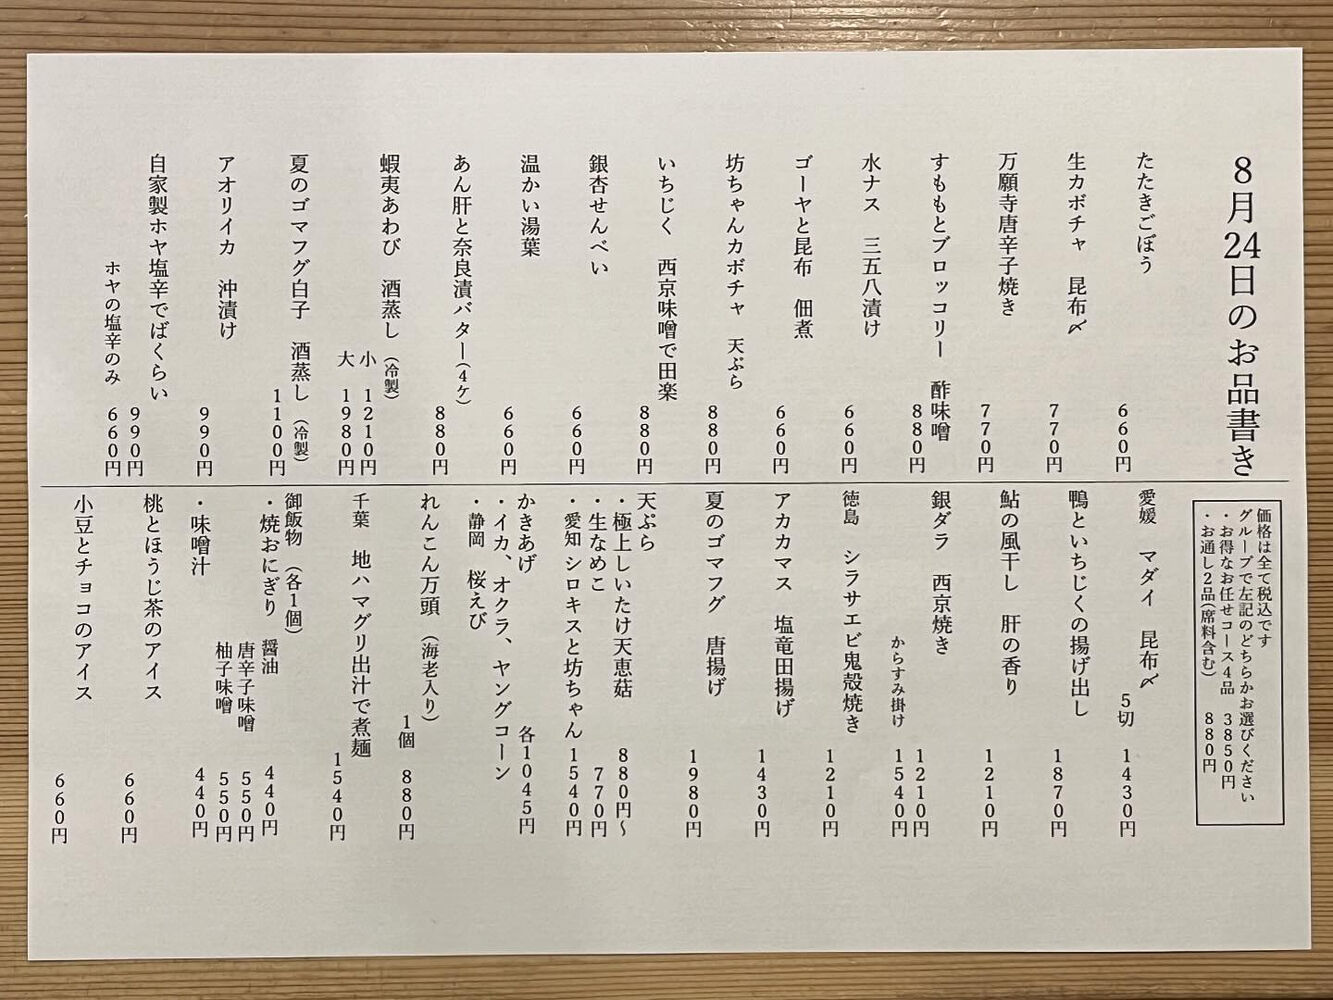 8月24日のお品書き
たたきごぼう 660円
生カボチャ 昆布〆 770円
万願寺唐辛子焼き 770円
すももとブロッコリー 酢味噌 880円
水ナス 三五八漬け 660円
ゴーヤと昆布 佃煮 660円
坊ちゃんカボチャ 天ぷら 880円
いちじく 西京味噌で田楽 880円
銀杏せんべい 660円
温かい湯葉 660円
あん肝と奈良漬バター(4ケ) 880円
蝦夷あわび 酒蒸し(冷製)
小 1210円
大 1980円
夏のゴマフグ白子 酒蒸し(冷製) 1100円
アオリイカ 沖漬け 990円
自家製ホヤ塩辛でばくらい 990円
ホヤの塩辛のみ 660円
価格は全て税込です
グループで左記のどちらかお選びください
・お得なお任せコース4品 3850円
・お通し2品(席料含む) 880円
愛媛 マダイ 昆布〆
5切 1430円
鴨といちじくの揚げ出し 1870円
鮎の風干し 肝の香り 1210円
銀ダラ 西京焼き 1210円
からすみ掛け 1540円
徳島 シラサエビ鬼殻焼き 1210円
アカカマス 塩竜田揚げ 1430円
夏のゴマフグ 唐揚げ 1980円
天ぷら
・極上しいたけ天恵菇 880円〜
・生なめこ 770円
・愛知 シロキスと坊ちゃん 1540円
かきあげ 各1045円
・イカ、オクラ、ヤングコーン
・静岡 桜えび
れんこん万頭(海老入り)
1個 880円
千葉 地ハマグリ出汁で煮麺 1540円
御飯物(各1個)
・焼おにぎり 醤油 440円
唐辛子味噌 550円
柚子味噌 550円
・味噌汁 440円
桃とほうじ茶のアイス 660円
小豆とチョコのアイス 660円